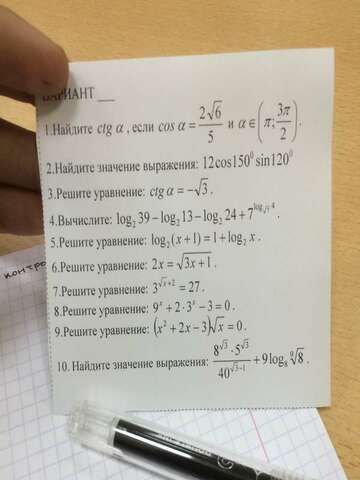 ВАРИАНТ __
1.Найдите ctg α , если cos α = 2√6/5 и α∈(π; 3π/2).
2.Найдите значение выражения: 12cos150⁰ sin120⁰
3.Решите уравнение: ctg α = −√3 .
4.Вычислите: log₂ 39 − log₂ 13 − log₂ 24 + 7^(log_√7 4)
5.Решите уравнение: log₂(x+1) = 1 + log₂ x .
6.Решите уравнение: 2x = √(3x+1) .
7.Решите уравнение: 3^(√x+2) = 27 .
8.Решите уравнение: 9ˣ + 2·3ˣ − 3 = 0 .
9.Решите уравнение: (x² + 2x − 3)√x = 0 .
10. Найдите значение выражения: (8^√3 · 5^√3)/(40^(√3−1)) + 9log₈ ⁹√8 .
контро